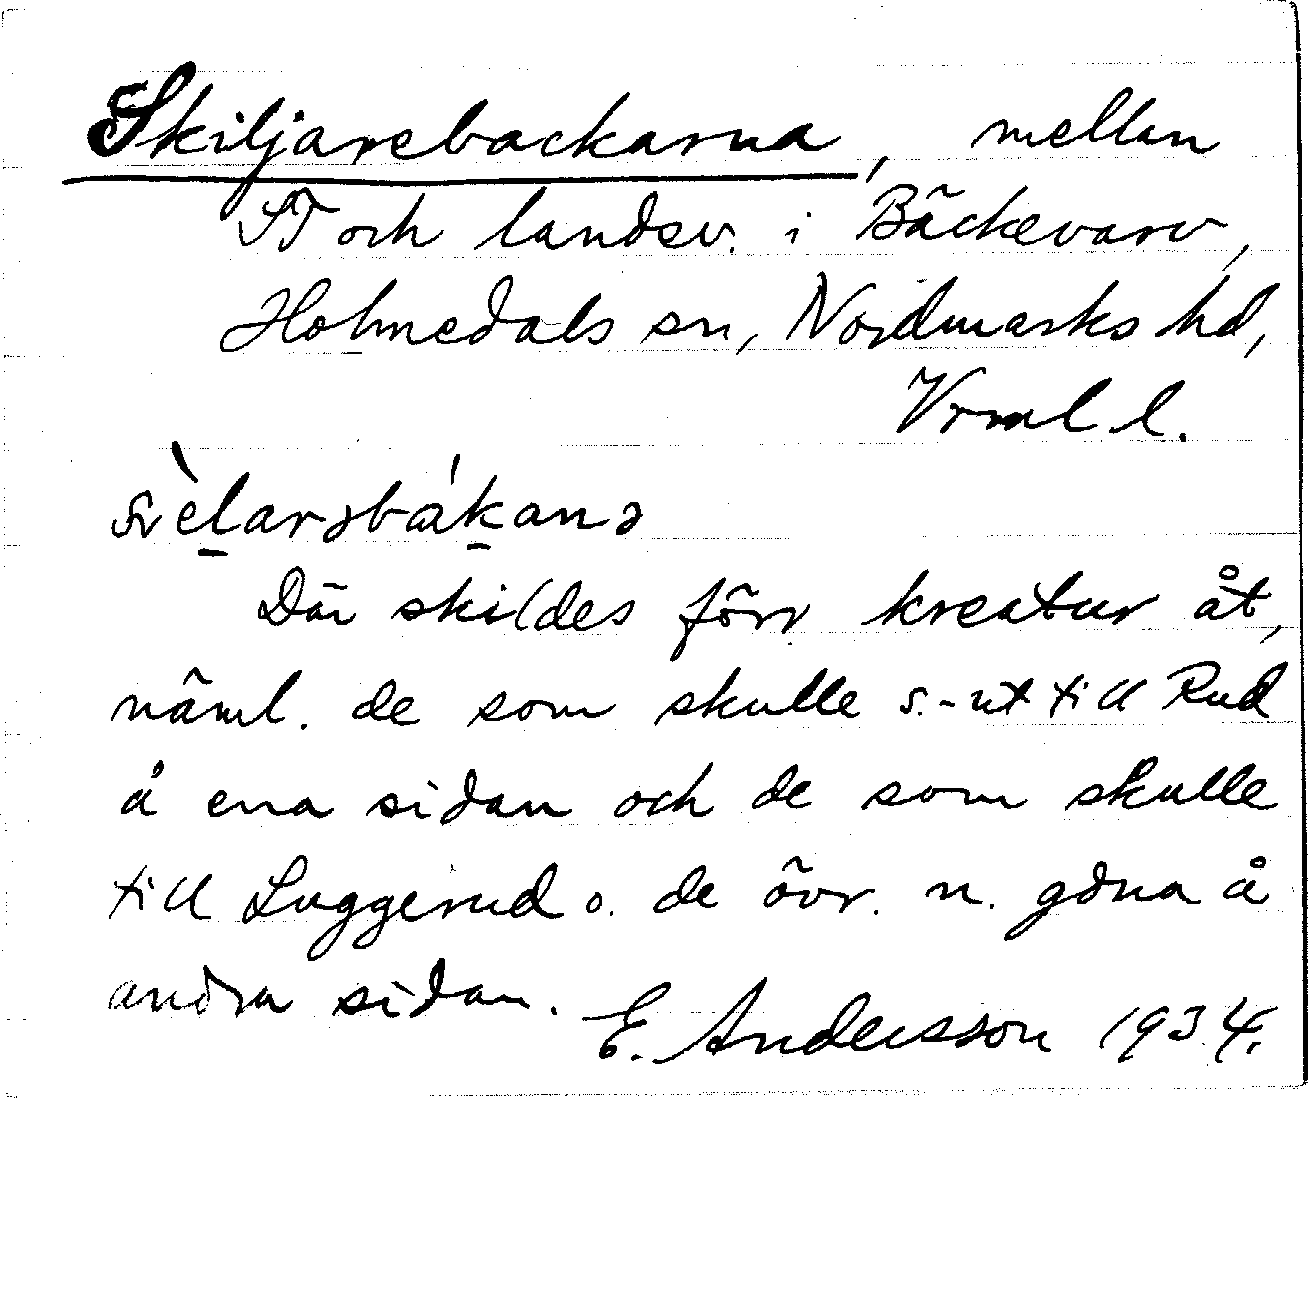 Skiljarebackarna, mellan
ST och landsv. i Bäckevarv,
Holmedals sn, Nordmarks hd,
Vrml l.
Där skildes förr kreatur åt,
näml. de som skulle s.-ut till Rud
å ena sidan och de som skulle
till Luggerud o. de övr. n. gdna å
andra sidan.
E. Andersson 1934.